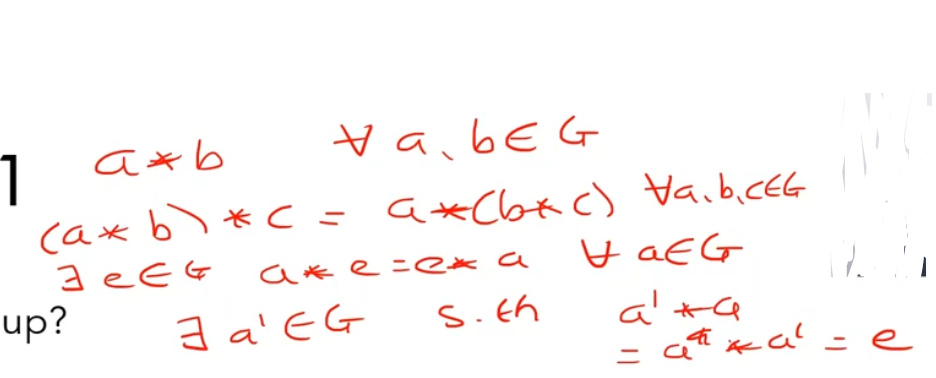 1 a*b ∀ a, b∈G
(a*b)*c = a*(b*c) ∀a,b,c∈G
∃ e∈G a*e=e*a ∀ a∈G
up? ∃ a'∈G s.th a'*a
= a*a' = e